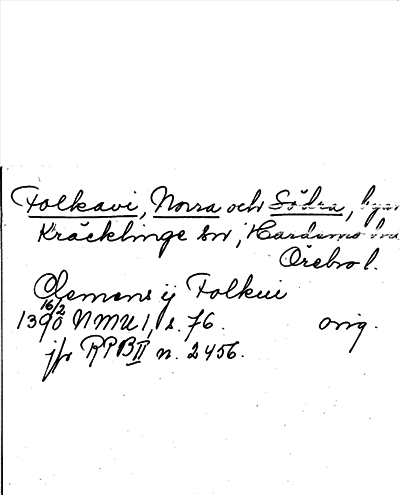 Folkavi, Norra och Södra, byar
Kräcklinge sn, Hardemo hd
Örebro l.
Clemens ij Folkui
16/2
1390 NMU 1, s. 76. orig.
jfr RPB II n. 2456.